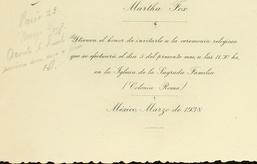 Martha Fox
y tienen el honor de invitarle a la ceremonia religiosa
que se efectuará el día 5 del presente mes, a las 11.30 hs.
en la Iglesia de la Sagrada Familia
(Colonia Roma)
México, Marzo de 1938